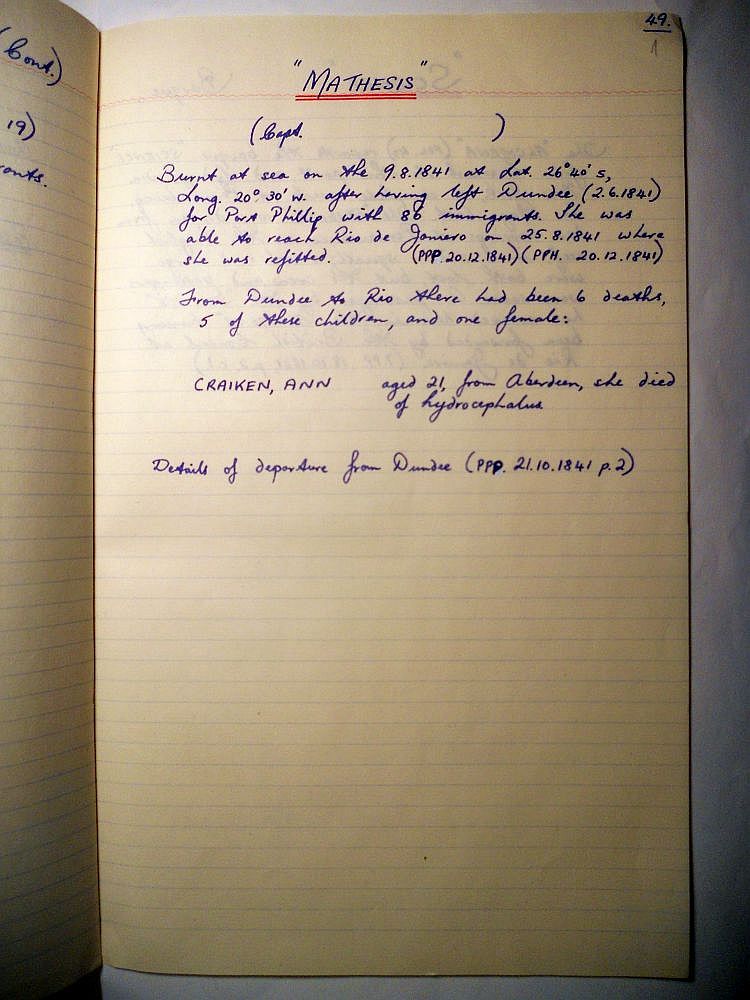 (Cont.)
19)
49.
1
"MATHESIS"
(Capt. )
Burnt at sea on the 9.8.1841 at Lat. 26° 40' s,
Long. 20° 30' w. after having left Dundee (2.6.1841)
for Port Phillip with 86 immigrants. She was
able to reach Rio de Janiero on 25.8.1841 where
she was refitted. (PPP 20.12.1841) (PPH. 20.12.1841)
From Dundee to Rio there had been 6 deaths,
5 of these children, and one female:
CRAIKEN, ANN aged 21, from Aberdeen, she died
of hydrocephalus
Details of departure from Dundee (PPP. 21.10.1841 p.2)